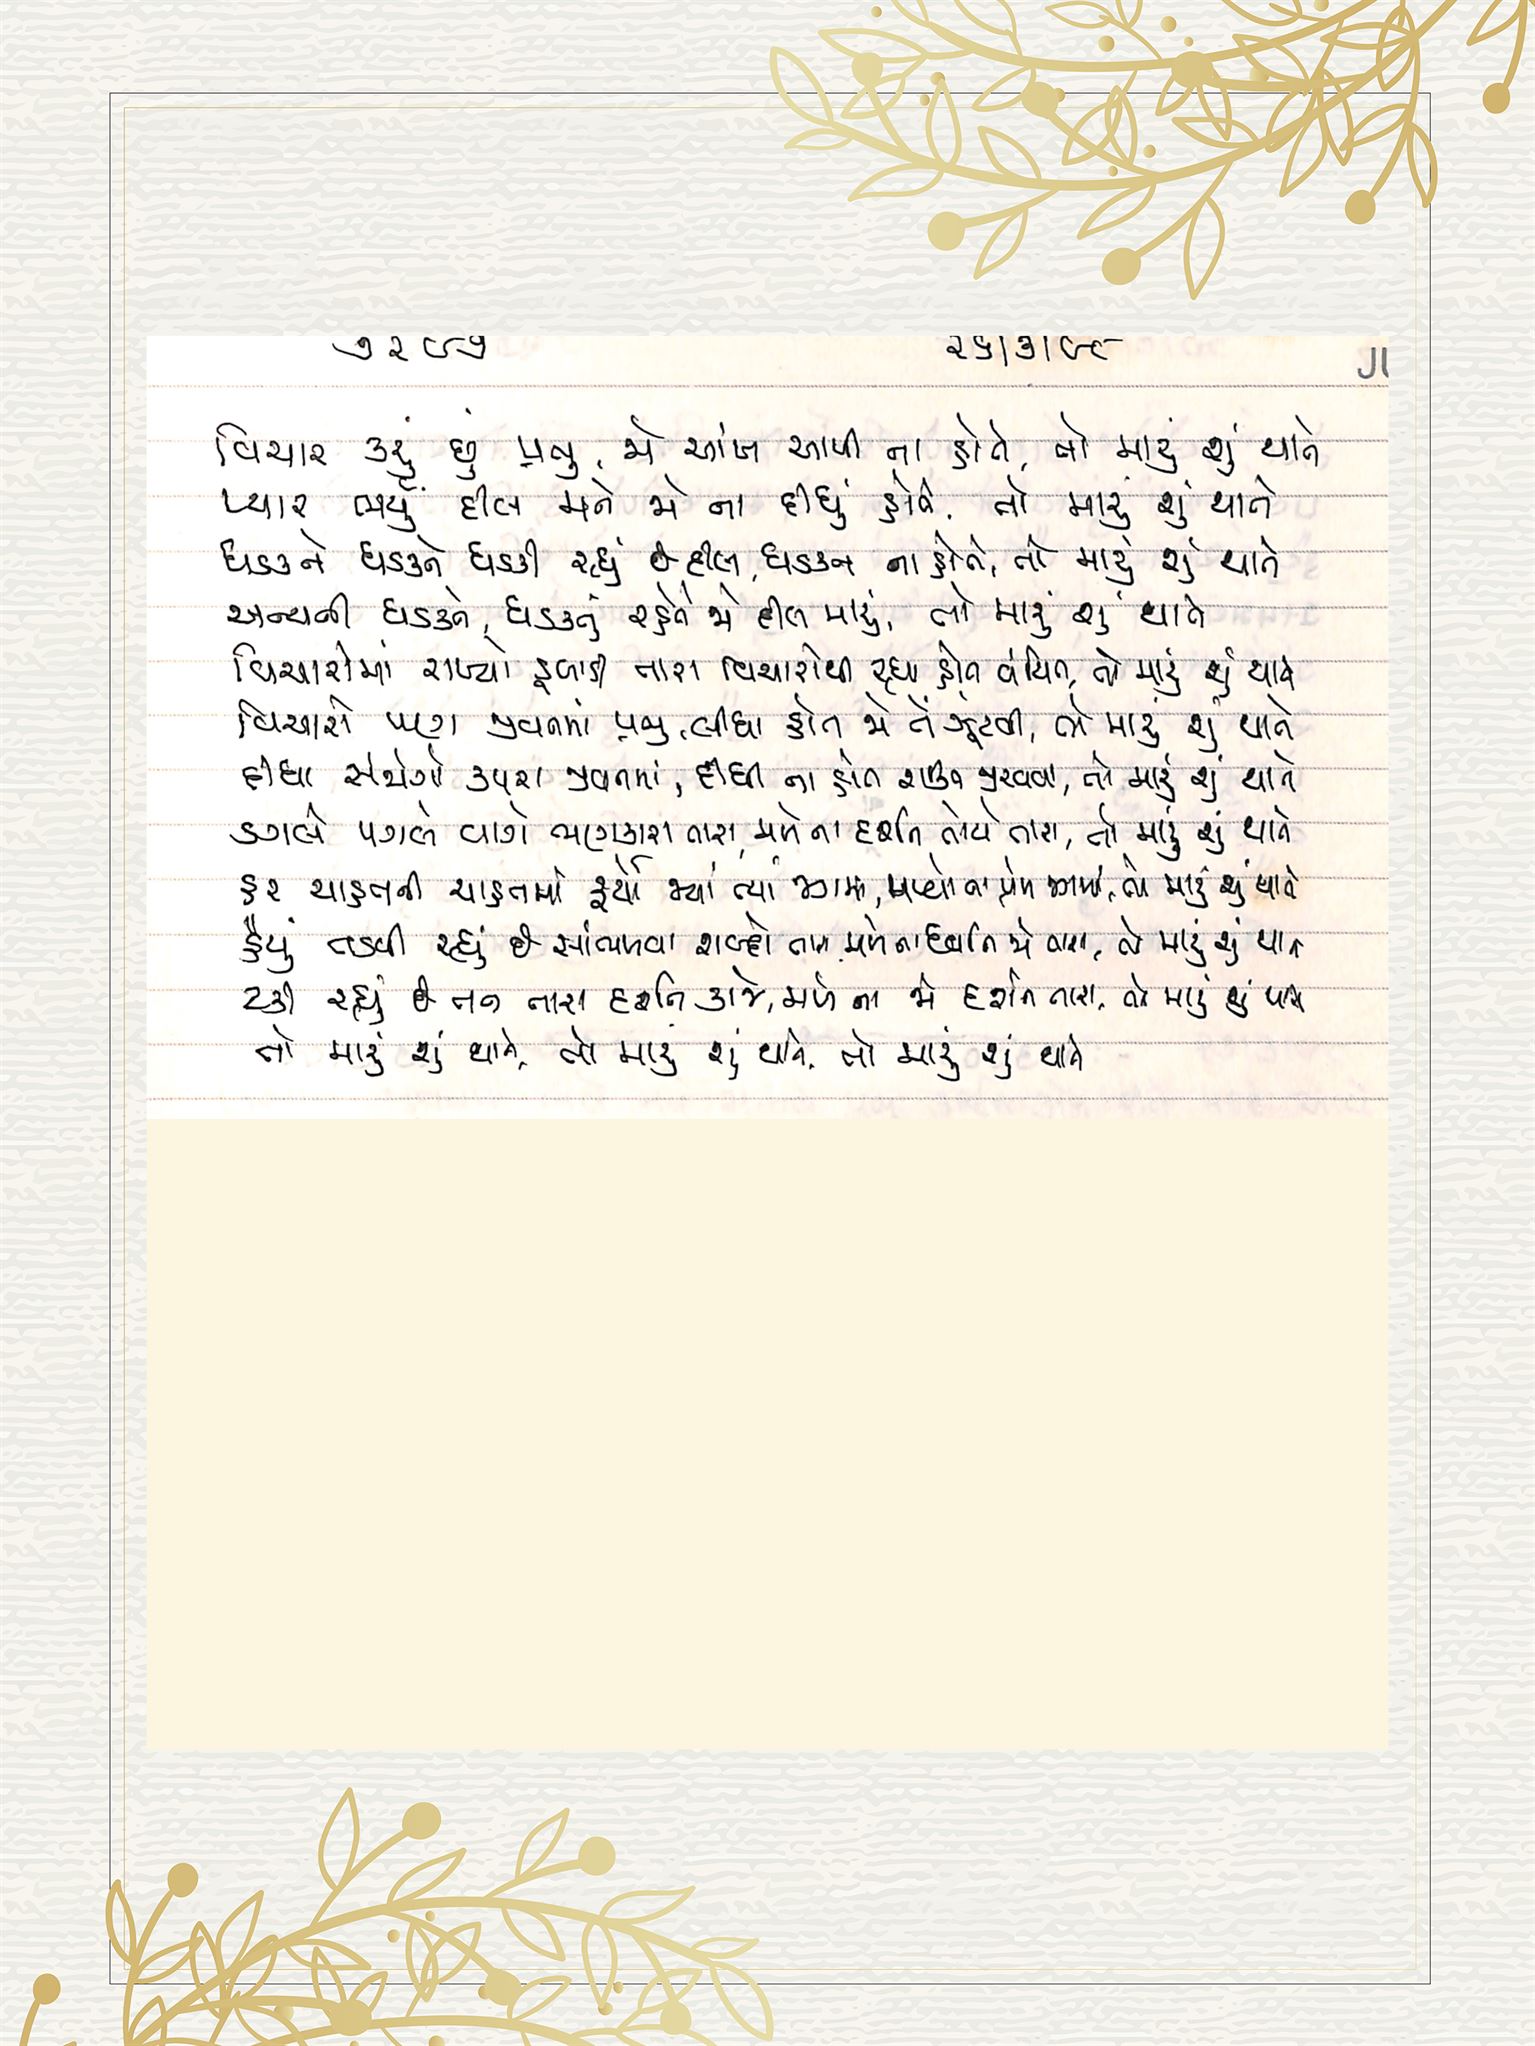 ૭૨૯૫ ૨૫/૩/૯૮
વિચાર કરું છું પ્રભુ, જો આંખ આપી ના હોતે, તો મારું શું થાતે
પ્યાર ભર્યું દીલ મને જો ના દીધું હોતે, તો મારું શું થાતે
ધડકને ધડકને ધડકી રહ્યું છે દીલ, ધડકન ના હોતે, તો મારું શું થાતે
અન્યની ધડકને, ધડકતું રહેતે જો દીલ મારું, તો મારું શું થાતે
વિચારોમાં રાખ્યો ડૂબાડી તારા વિચારોથી રહ્યા હોત વંચિત, તો મારું શું થાતે
વિચારો પણ જીવનમાં પ્રભુ, લીધા હોત જો તેં ઝૂંટવી, તો મારું શું થાતે
દીધા સંજોગો કપરા જીવનમાં, દીધી ના હોત શક્તિ જીરવવા, તો મારું શું થાતે
ડગલે પગલે વાગે ભણકારા તારા, મળે ના દર્શન તોયે તારા, તો મારું શું થાતે
હર ચાહતની ચાહતમાં ફર્યો જ્યાં ત્યાં જગમાં, મળ્યો ના પ્રેમ જગમાં, તો મારું શું થાતે
હૈયું તડપી રહ્યું છે સાંભળવા શબ્દો તારા, મળે ના ધ્વનિ જો તારા, તો મારું શું થાતે
ટકી રહ્યું છે તન તારા દર્શન કાજે, મળે ના જો દર્શન તારા, તો મારું શું થાતે
તો મારું શું થાતે, તો મારું શું થાતે, તો મારું શું થાતે